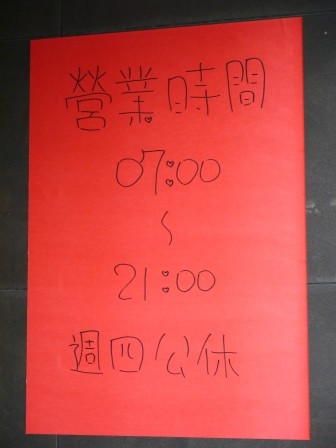 營業時間
07:00
~
21:00
週四公休